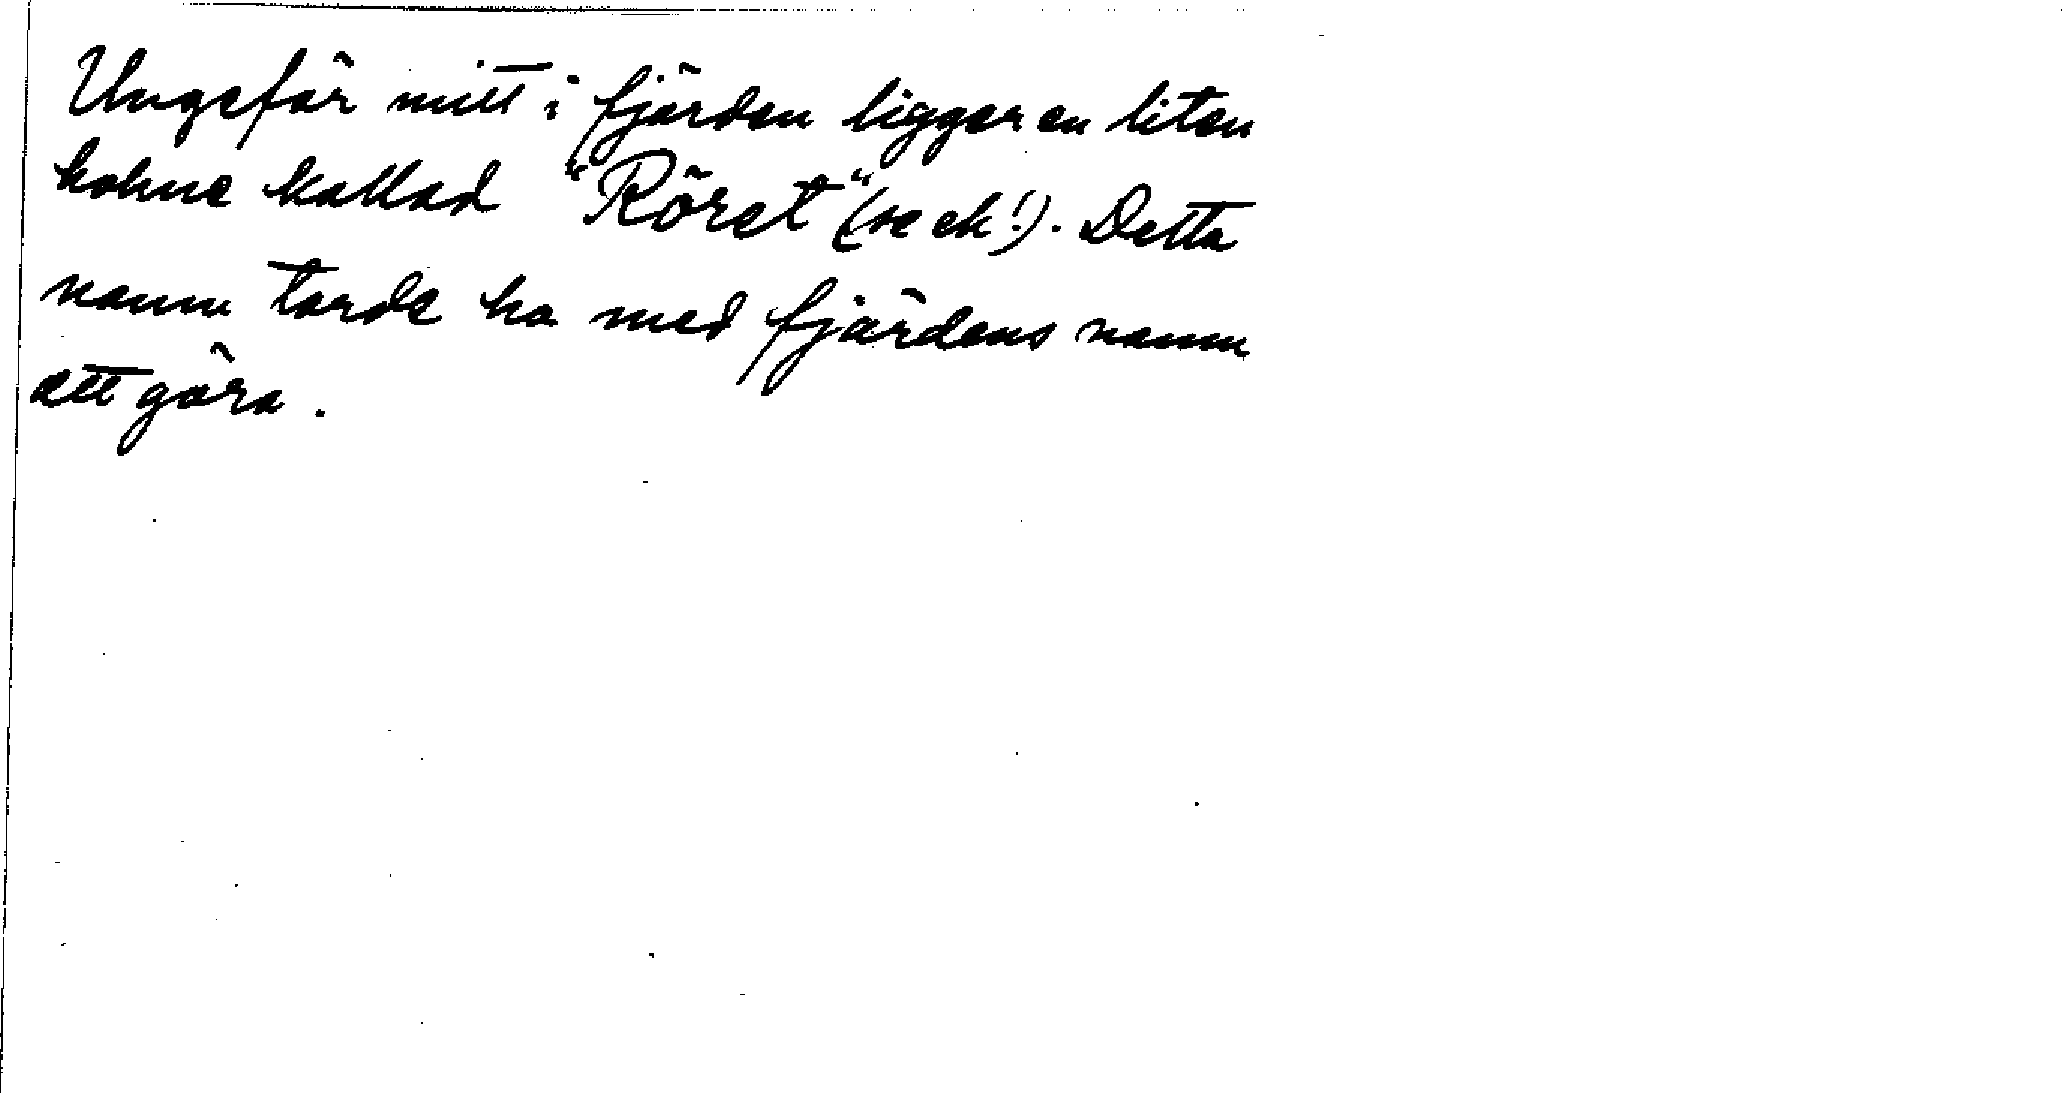 Ungefär mitt i fjärden ligger en liten
holme kallad "Röret" (se ek!). Detta
namn torde ha med fjärdens namn
att göra.